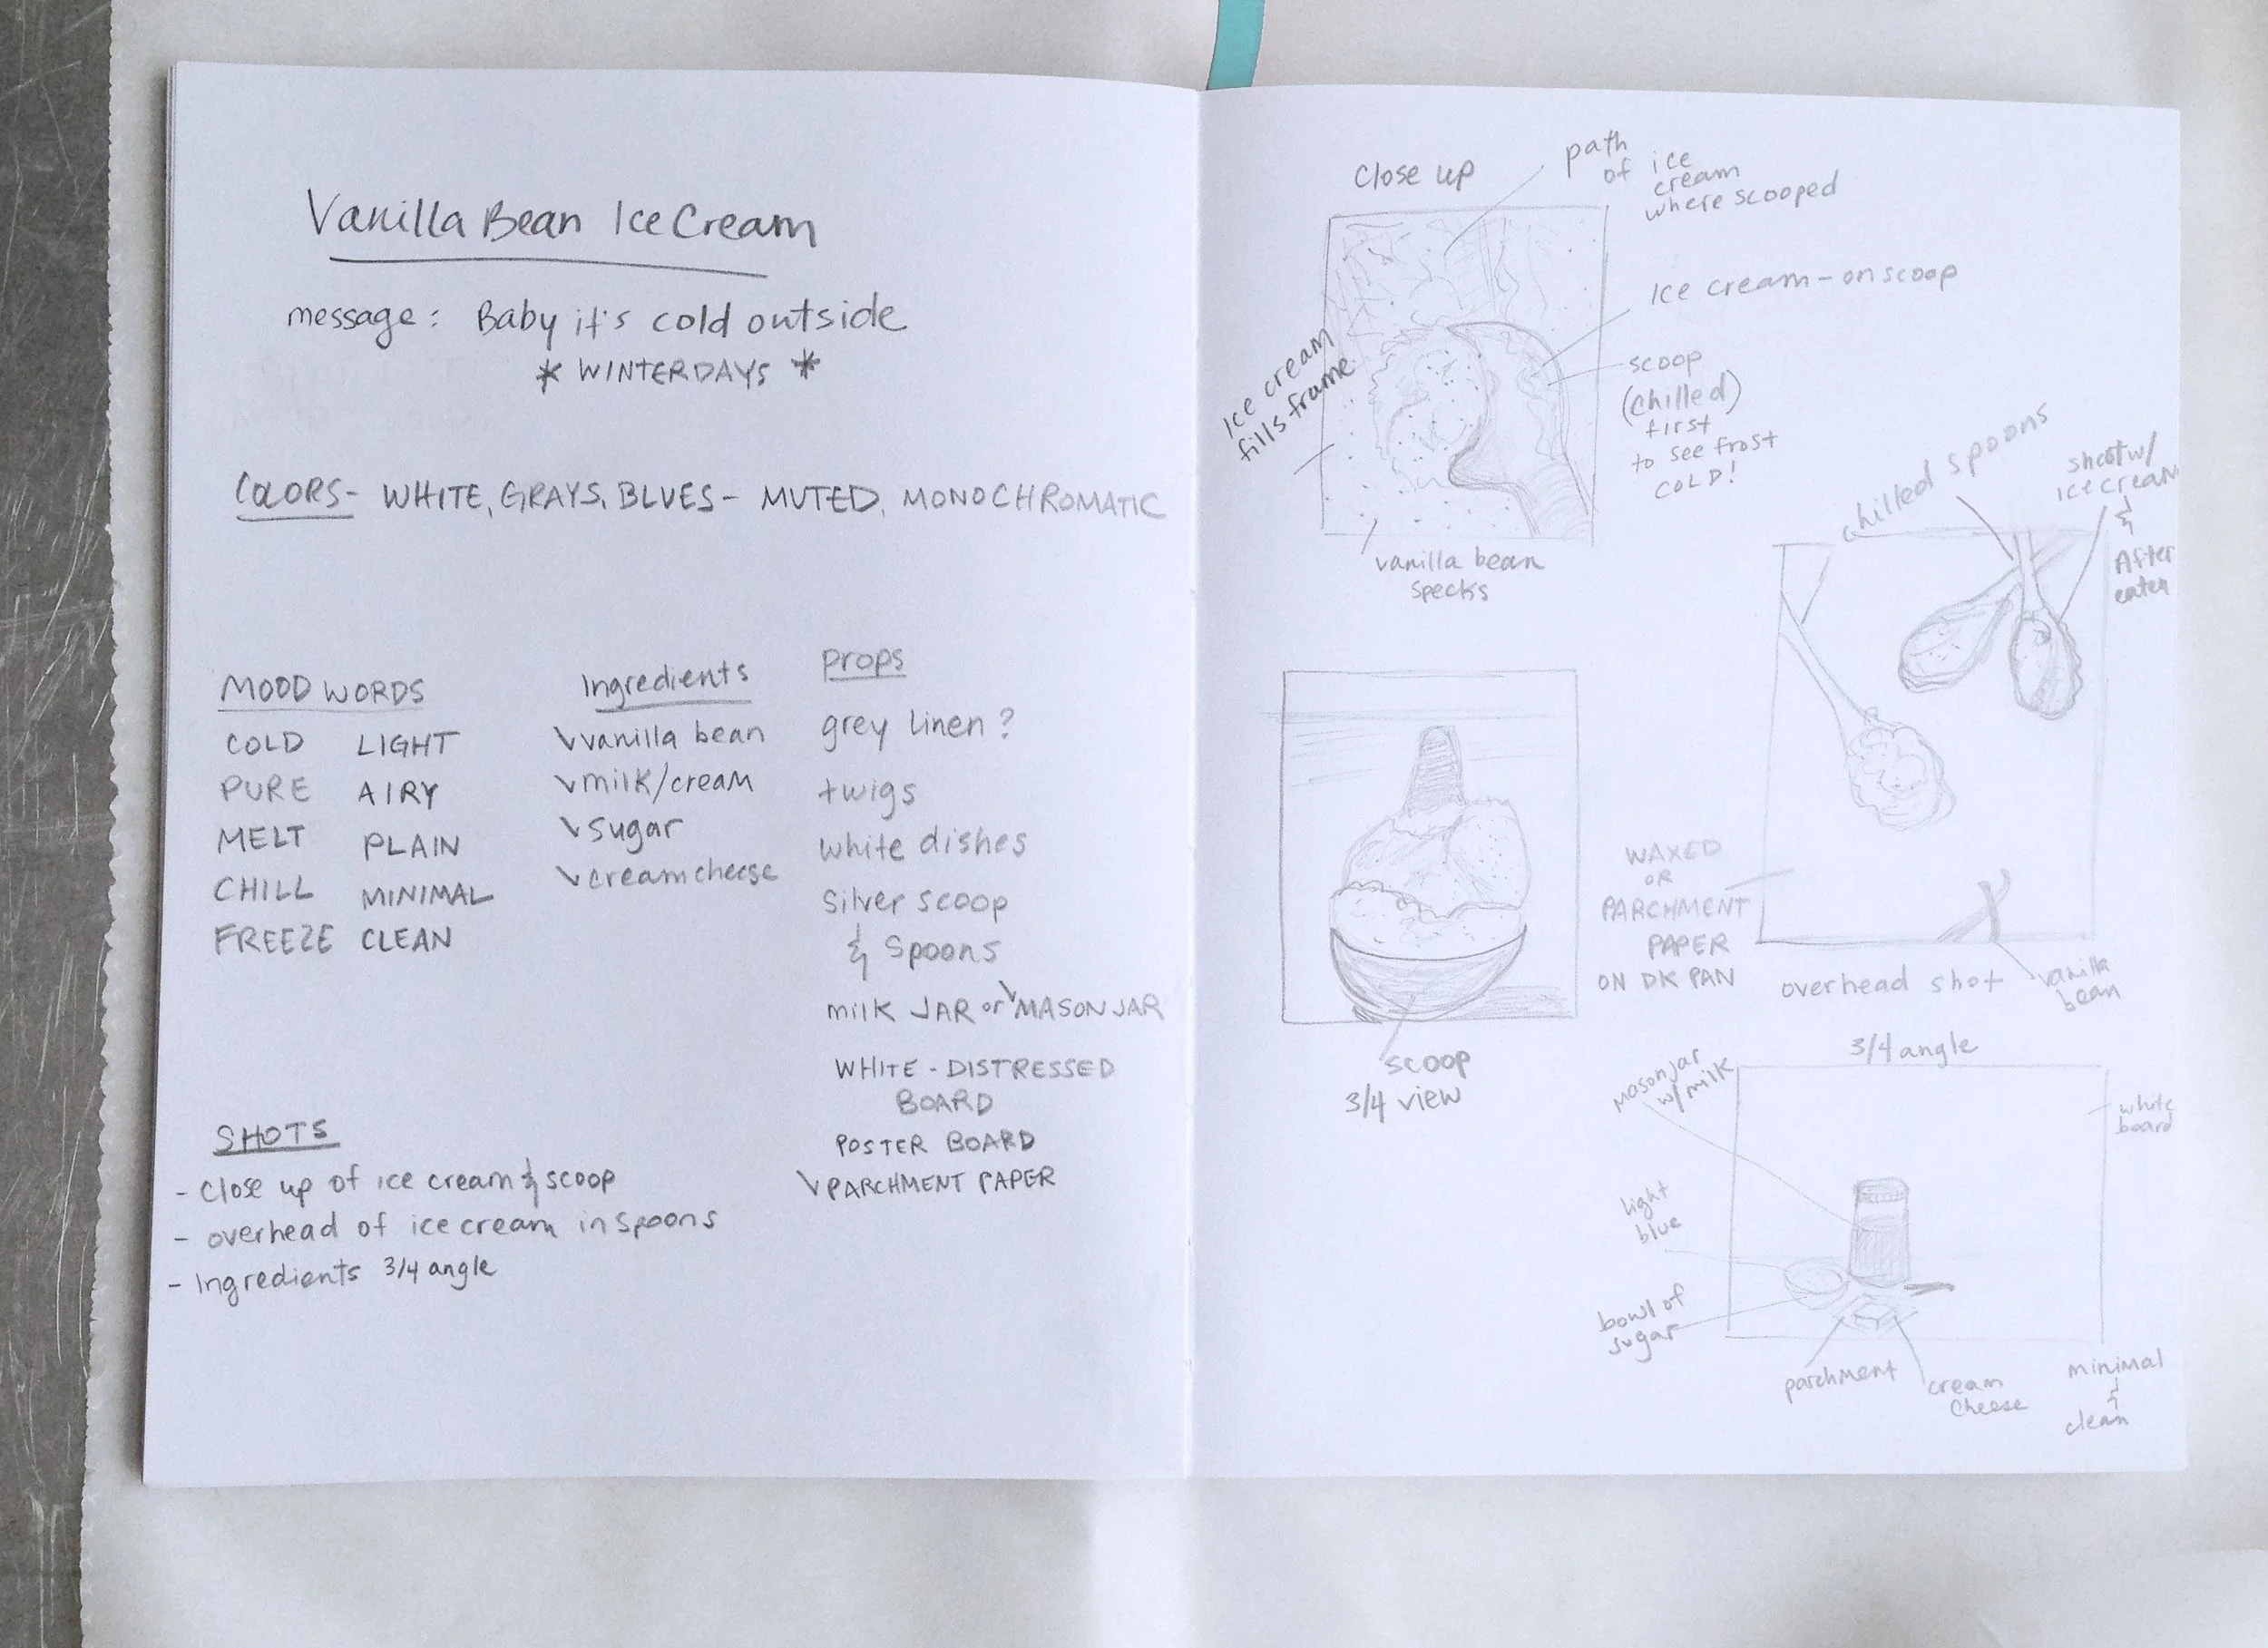 Vanilla Bean Ice Cream
message: Baby it's cold outside
* WINTERDAYS *
COLORS- WHITE, GRAYS, BLUES - MUTED, MONOCHROMATIC
MOOD WORDS
COLD LIGHT
PURE AIRY
MELT PLAIN
CHILL MINIMAL
FREEZE CLEAN
Ingredients
vanilla bean
milk/cream
sugar
creamcheese
props
grey linen ?
twigs
white dishes
silver scoop
& spoons
milk JAR or MASON JAR
WHITE - DISTRESSED
BOARD
POSTER BOARD
PARCHMENT PAPER
SHOTS
- close up of ice cream & scoop
- overhead of ice cream in spoons
- Ingredients 3/4 angle
Close up
path
of ice
cream
where scooped
Ice cream - on scoop
Ice cream
fills frame
scoop
(chilled)
first
to see frost
COLD!
vanilla bean
specks
chilled spoons
shoot w/
ice cream
&
After
eaten
WAXED
OR
PARCHMENT
PAPER
ON DK PAN
overhead shot
vanilla
bean
scoop
3/4 view
3/4 angle
mason jar
w/ milk
white
board
light
blue
bowl of
sugar
parchment
cream
cheese
minimal
&
clean